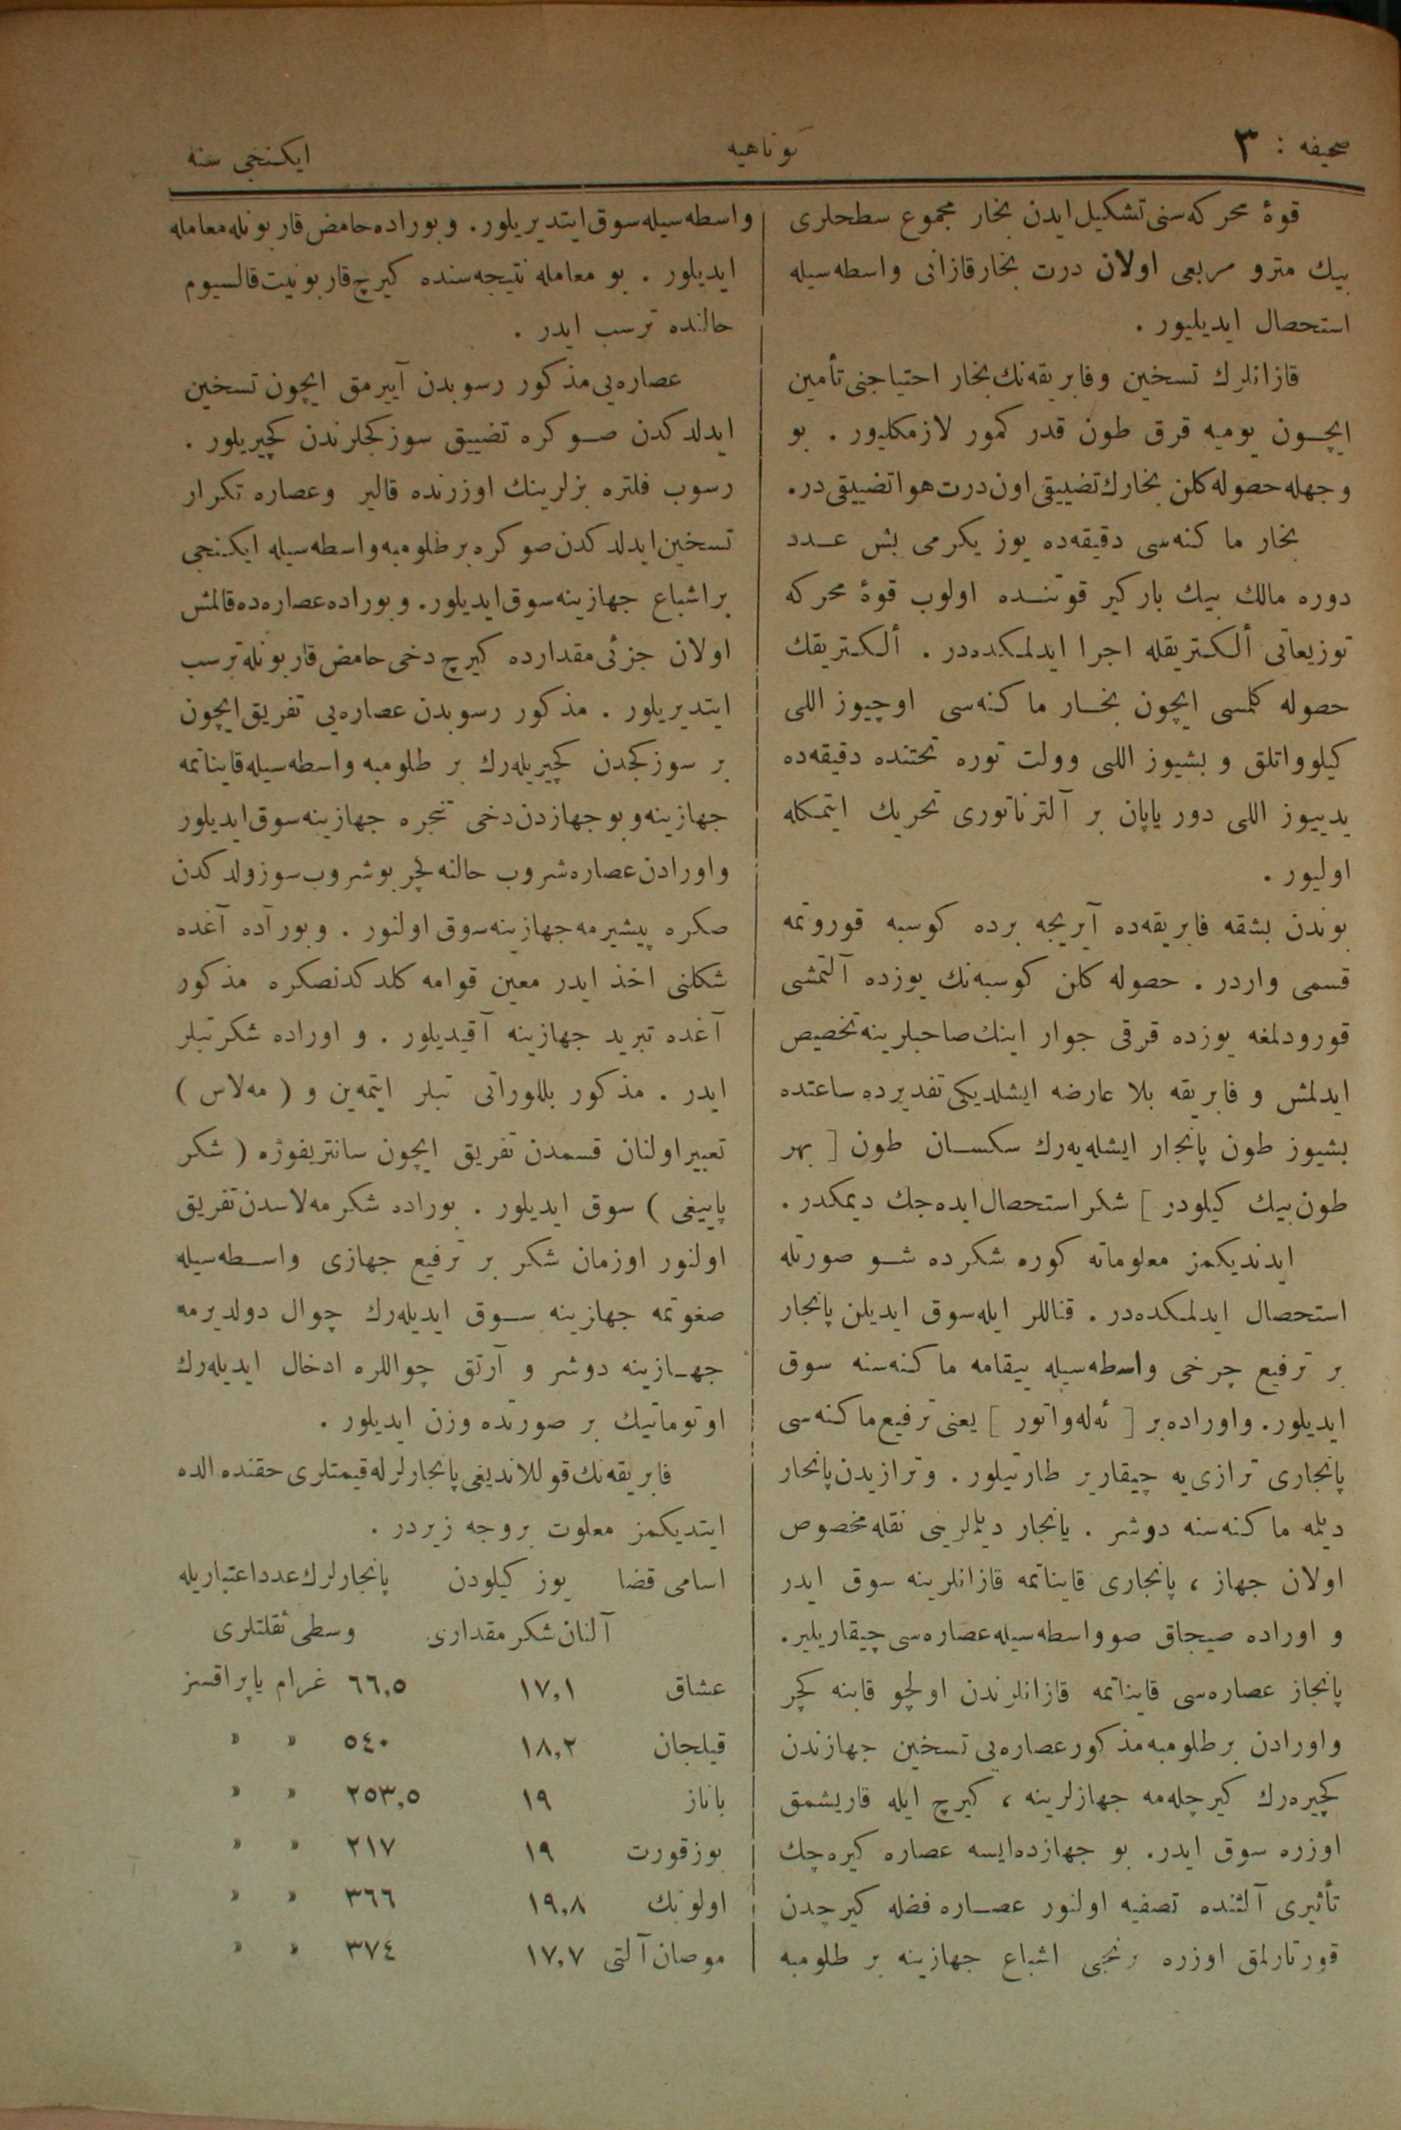 صحیفه : ٣
كوتاهیه
ایكنجی سنه
قوهٔ محركه‌سنی تشكیل ایدن بخار مجموع سطحلری
بیك مترو مربعی اولان درت بخار قازانی واسطه‌سیله
استحصال ایدیلیور .
قازانلرك تسخین وفابریقه‌نك بخار احتیاجنی تأمین
ایچـون یومیه قرق طون قدر كمور لازمكلیور . بو
وجهله حصوله كلن بخارك تضییقی اون درت هوا تضییقی در.
بخار ماكنه‌سی دقیقه‌ده یوز یكرمی بش عـدد
دوره مالك بیك باركیر قوتنـده اولوب قوهٔ محركه
توزیعاتی ألكتریقله اجرا ایدلمكده‌در . ألكتریقك
حصوله كلمسی ایچون بخـار ماكنه‌سی اوچیوز اللی
كیلوواتلق و بشیوز اللی وولت توره تحتنده دقیقه‌ده
یدییوز اللی دور یاپان بر آلترناتوری تحریك ایتمكله
اولیور .
بوندن بشقه فابریقه‌ده آیریجه برده كوسبه قوروتمه
قسمی واردر . حصوله كلن كوسبه‌نك یوزده آلتمشی
قورودلمغه یوزده قرقی جوار اینك صاحبلرینه تخصیص
ایدلمش و فابریقه بلا عارضه ایشلدیكی تقدیرده ساعتده
بشیوز طون پانجار ایشله‌یه‌رك سكسـان طون [ بهر
طون بیك كیلودر ] شكر استحصال ایده‌جك دیمكدر .
ایدندیكمز معلوماته كوره شكرده شـو صورتله
استحصال ایدلمكده‌در . قناللر ایله سوق ایدیلن پانجار
بر ترفیع چرخی واسطه‌سیله ییقامه ماكنه‌سنه سوق
ایدیلور. واوراده بر [ ئه‌له‌واتور ] یعنی ترفیع ماكنه‌سی
پانجاری ترازی‌یه چیقاریر طارتیلور . وترازیدن پانجار
دیلمه ماكنه‌سنه دوشر . پانجار دیلملرینی نقله مخصوص
اولان جهاز ، پانجاری قایناتمه قازانلرینه سوق ایدر
و اوراده صیجاق صو واسطه‌سیله عصاره‌سی چیقاریلیر.
پانجاز عصاره‌سی قایناتمه قازانلرندن اولچو قابنه كچر
واورادن بر طلومبه مذكور عصاره‌یی تسخین جهازندن
كچیره‌رك كیرچله‌مه جهازلرینه ، كیرچ ایله قاریشمق
اوزره سوق ایدر. بو جهازده ایسه عصاره كیره‌چك
تأثیری آلتنده تصفیه اولنور عصـاره فضله كیرچدن
قورتارلمق اوزره برنجی اشباع جهازینه بر طلومبه
واسطه‌سیله سوق ایتدیریلور. وبوراده حامض قاربونله معامله
ایدیلور . بو معامله نتیجه‌سنده كیرچ قاربونیت قالسیوم
حالنده ترسب ایدر .
عصاره‌یی مذكور رسوبدن آییرمق ایچون تسخین
ایدلدكدن صـوكره تضییق سوزكجلرندن كچیریلور .
رسوب فلتره بزلرینك اوزرنده قالیر وعصاره تكرار
تسخین ایدلدكدن صوكره بر طلومبه واسطه‌سیله ایكنجی
بر اشباع جهازینه سوق ایدیلور. وبوراده عصاره‌ده قالمش
اولان جزئی مقدارده كیرچ دخی حامض قاربونله ترسب
ایتدیریلور . مذكور رسوبدن عصاره‌یی تفریق ایچون
بر سوزكجدن كچیریله‌رك بر طلومبه واسطه‌سیله قایناتمه
جهازینه وبو جهازدن دخی تنجره جهازینه سوق ایدیلور
واورادن عصاره شروب حالنه كچر بو شروب سوزولدكدن
صكره پیشیرمه جهازینه سوق اولنور . وبوراده آغده
شكلنی اخذ ایدر معین قوامه كلدكدنصكره مذكور
آغده تبرید جهازینه آقیدیلور . و اوراده شكر تبلر
ایدر . مذكور بللوراتی تبلر ایتمه‌ین و ( مه‌لاس )
تعبیر اولنان قسمدن تفریق ایچون سانتریفوژه ( شكر
پاییغی ) سوق ایدیلور . بوراده شكر مه‌لاسدن تفریق
اولنور اوزمان شكر بر ترفیع جهازی واسـطه‌سیله
صغوتمه جهازینه سـوق ایدیله‌رك چوال دولدیرمه
جهـازینه دوشر و آرتق چواللره ادخال ایدیله‌رك
اوتوماتیك بر صورتده وزن ایدیلور .
فابریقه‌نك قوللاندیغی پانجارلرله قیمتلری حقنده الده
ایتدیكمز معلوت بروجه زیردر .
اسامی قضا یوز كیلودن پانجارلرك عدد اعتباریله
آلنان شكر مقداری وسطی ثقلتلری
عشاق ١٧,١ ٦٦,٥ غرام یاپراقسز
قیلجان ١٨,٢ ٥٤٠ » »
باناز ١٩ ٢٥٣,٥ » »
بوزقورت ١٩ ٢١٧ » »
اولوبك ١٩,٨ ٣٦٦ » »
موصان آلتی ١٧,٧ ٣٧٤ » »